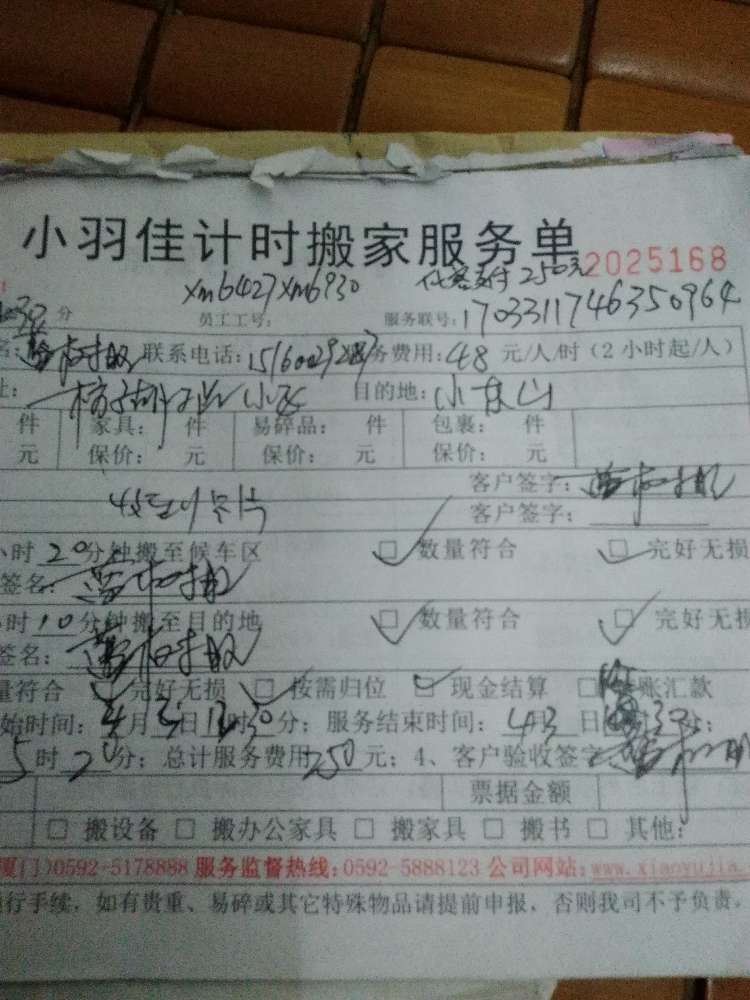 小羽佳计时搬家服务单 2025168
xm6427 xm6930 代客支付250元
30分 员工工号: 服务联号: 1703311746350964
联系电话: 务费用: 48 元/人/时（2小时起/人）
目的地: 小东山
件 家具: 件 易碎品: 件 包裹: 件
元 保价: 元 保价: 元 保价: 元
客户签字:
客户签字:
小时20分钟搬至候车区 □数量符合 □完好无损
签名:
时10分钟搬至目的地 □数量符合 □完好无损
签名:
量符合 □完好无损 □按需归位 □现金结算 □ 账汇款
始时间: 4月3日 时30分; 服务结束时间: 4月3日 时30
5时20分; 总计服务费用250元; 4、客户验收签字
票据金额
□ 搬设备 □ 搬办公家具 □ 搬家具 □ 搬书 □ 其他:
厦门)0592-5178888 服务监督热线:0592-5888123 公司网站:www.xiaoyujia.
行手续，如有贵重、易碎或其它特殊物品请提前申报，否则我司不予负责。